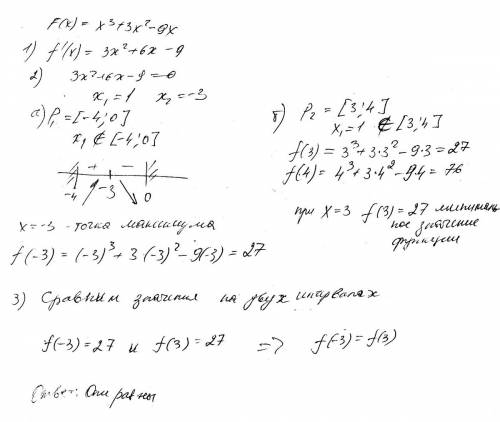 F(x) = x³+3x²-9x
1) f'(x) = 3x²+6x-9
2) 3x²+6x-9=0
x₁=1 x₂=-3
а) P₁=[-4;0]
x₁ ∉ [-4;0]
+ -
-4 -3 0
x=-3 - точка максимума
f(-3) = (-3)³+3(-3)²-9(-3) = 27
б) P₂ = [3;4]
x₁=1 ∉ [3;4]
f(3) = 3³+3·3²-9·3 = 27
f(4) = 4³+3·4²-9·4 = 76
при x=3 f(3)=27 минималь
ное значение
функции
3) Сравним значения на двух интервалах
f(-3)=27 и f(3)=27 => f(-3)=f(3)
Ответ: Они равны